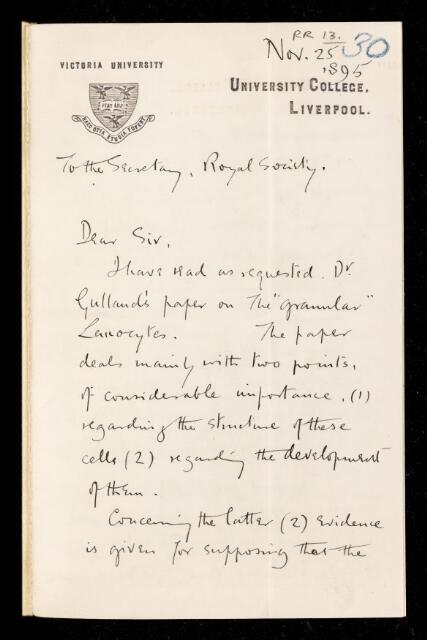 RR 13.
30
Nov. 25
1895
VICTORIA UNIVERSITY
UNIVERSITY COLLEGE,
LIVERPOOL.
FIAT LUX
HAEC OTIA STUDIA FOVENT
To the Secretary, Royal Society.
Dear Sir,
I have read as requested Dr
Gulland's paper on The "granular"
Leucocytes. The paper
deals mainly with two points,
of considerable importance, (1)
regarding the structure of these
cells (2) regarding the development
of them.
Concerning the latter (2) evidence
is given for supposing that the